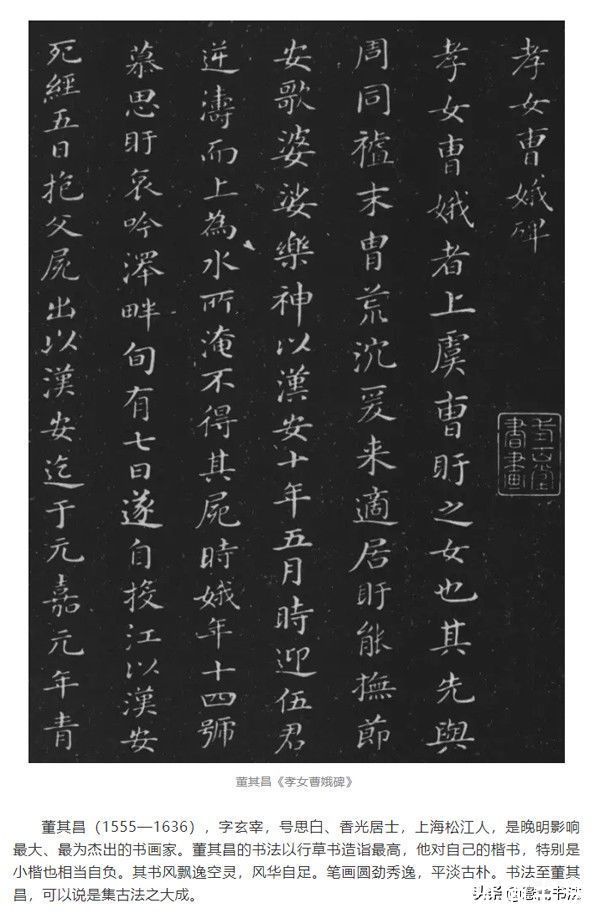 孝女曹娥碑
孝女曹娥者上虞曹盱之女也其先與
周同禋末胄荒沉爰来適居盱能撫節
安歌婆娑樂神以漢安十年五月時迎伍君
逆濤而上為水所淹不得其屍時娥年十四號
慕思盱哀吟澤畔旬有七日遂自投江以漢安
死經五日抱父屍出以漢安迄于元嘉元年青
書畫
董其昌《孝女曹娥碑》
董其昌（1555—1636），字玄宰，号思白、香光居士，上海松江人，是晚明影响
最大、最为杰出的书画家。董其昌的书法以行草书造诣最高，他对自己的楷书，特别是
小楷也相当自负。其书风飘逸空灵，风华自足。笔画圆劲秀逸，平淡古朴。书法至董其
昌，可以说是集古法之大成。
头条
书法